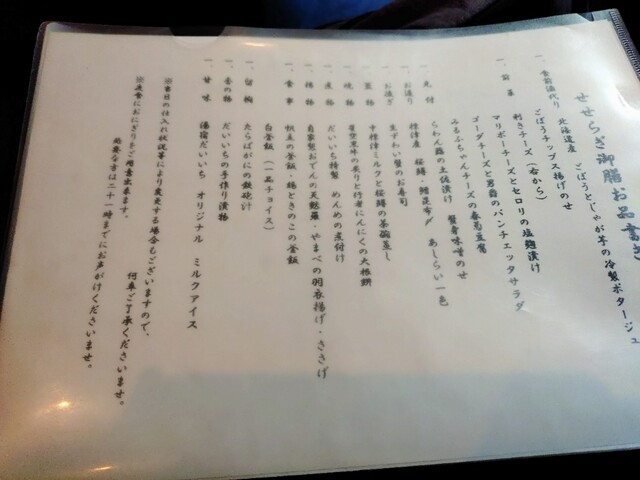 せせらぎ御膳お品書き
一、食前酒代り 北海道産 ごぼうとじゃが芋の冷製ポタージュ
ごぼうチップス揚げのせ
一、前菜 利きチーズ(右から)
マリボーチーズとセロリの塩麹漬け
ゴーダチーズと男爵のパンチェッタサラダ
みるふちゃんチーズの春菊豆腐
一、先付 らわん蕗の土佐漬け 蟹身味噌のせ
一、お造り 標津産 桜鱒・鱈昆布〆 あしらい一色
一、お凌ぎ 生ずわい蟹のお寿司
一、蒸物 中標津ミルクと桜鱒の茶碗蒸し
一、焼物 星空黒牛の炙りと行者にんにくの大根餅
一、煮物 だいいち特製 めんめの煮付け
一、揚物 自家製おでんの天麩羅・やまべの羽衣揚げ・ささげ
一、食事 帆立の釜飯・鶏ときのこの釜飯
白釜飯(一品チョイス)
一、留椀 たらばがにの鉄砲汁
一、香の物 だいいちの手作り漬物
一、甘味 湯宿だいいち オリジナル ミルクアイス
※当日の仕入れ状況等により変更する場合もございますので、
何卒ご了承くださいませ。
※夜食におにぎりをご用意出来ます。
必要な方は二十一時までにお声がけくださいませ。